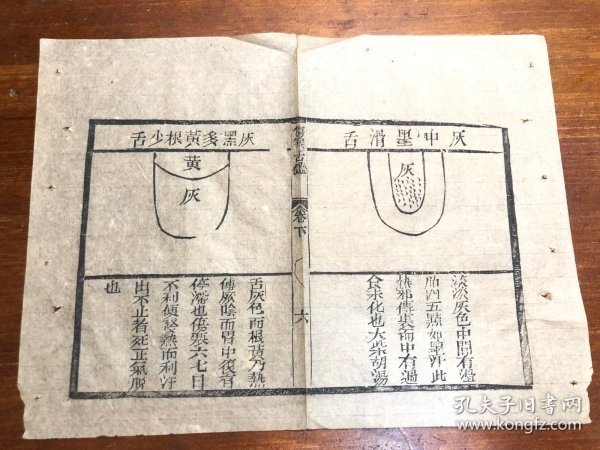 灰中墨滑舌
灰
淡淡灰色中間有滑
胎四五點如墨汁此
熱邪傳裏而中有過
食未化也大柴胡湯
傷寒舌鑑
卷下
六
灰黑多黄根少舌
黄
灰
舌灰色而根黄乃熱
傳厥陰而胃中復有
停滯也傷寒六七日
不利便發熱而利汗
出不止者死正氣脫
也
孔夫子旧书网
www.kongfz.com